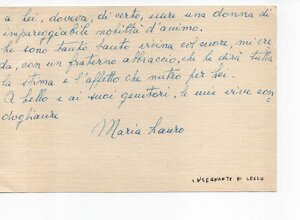 a Lei, doveva, di certo, essere una donna di
impareggiabile nobiltà d'animo.
Le sono tanto tanto vicina col cuore, mi cre
da, con un fraterno abbraccio, che le dirà tutta
la stima e l'affetto che nutro per Lei.
A Lello e ai suoi genitori, le mie vive con
doglianze
Maria Lauro
INSEGNANTE DI LELLO